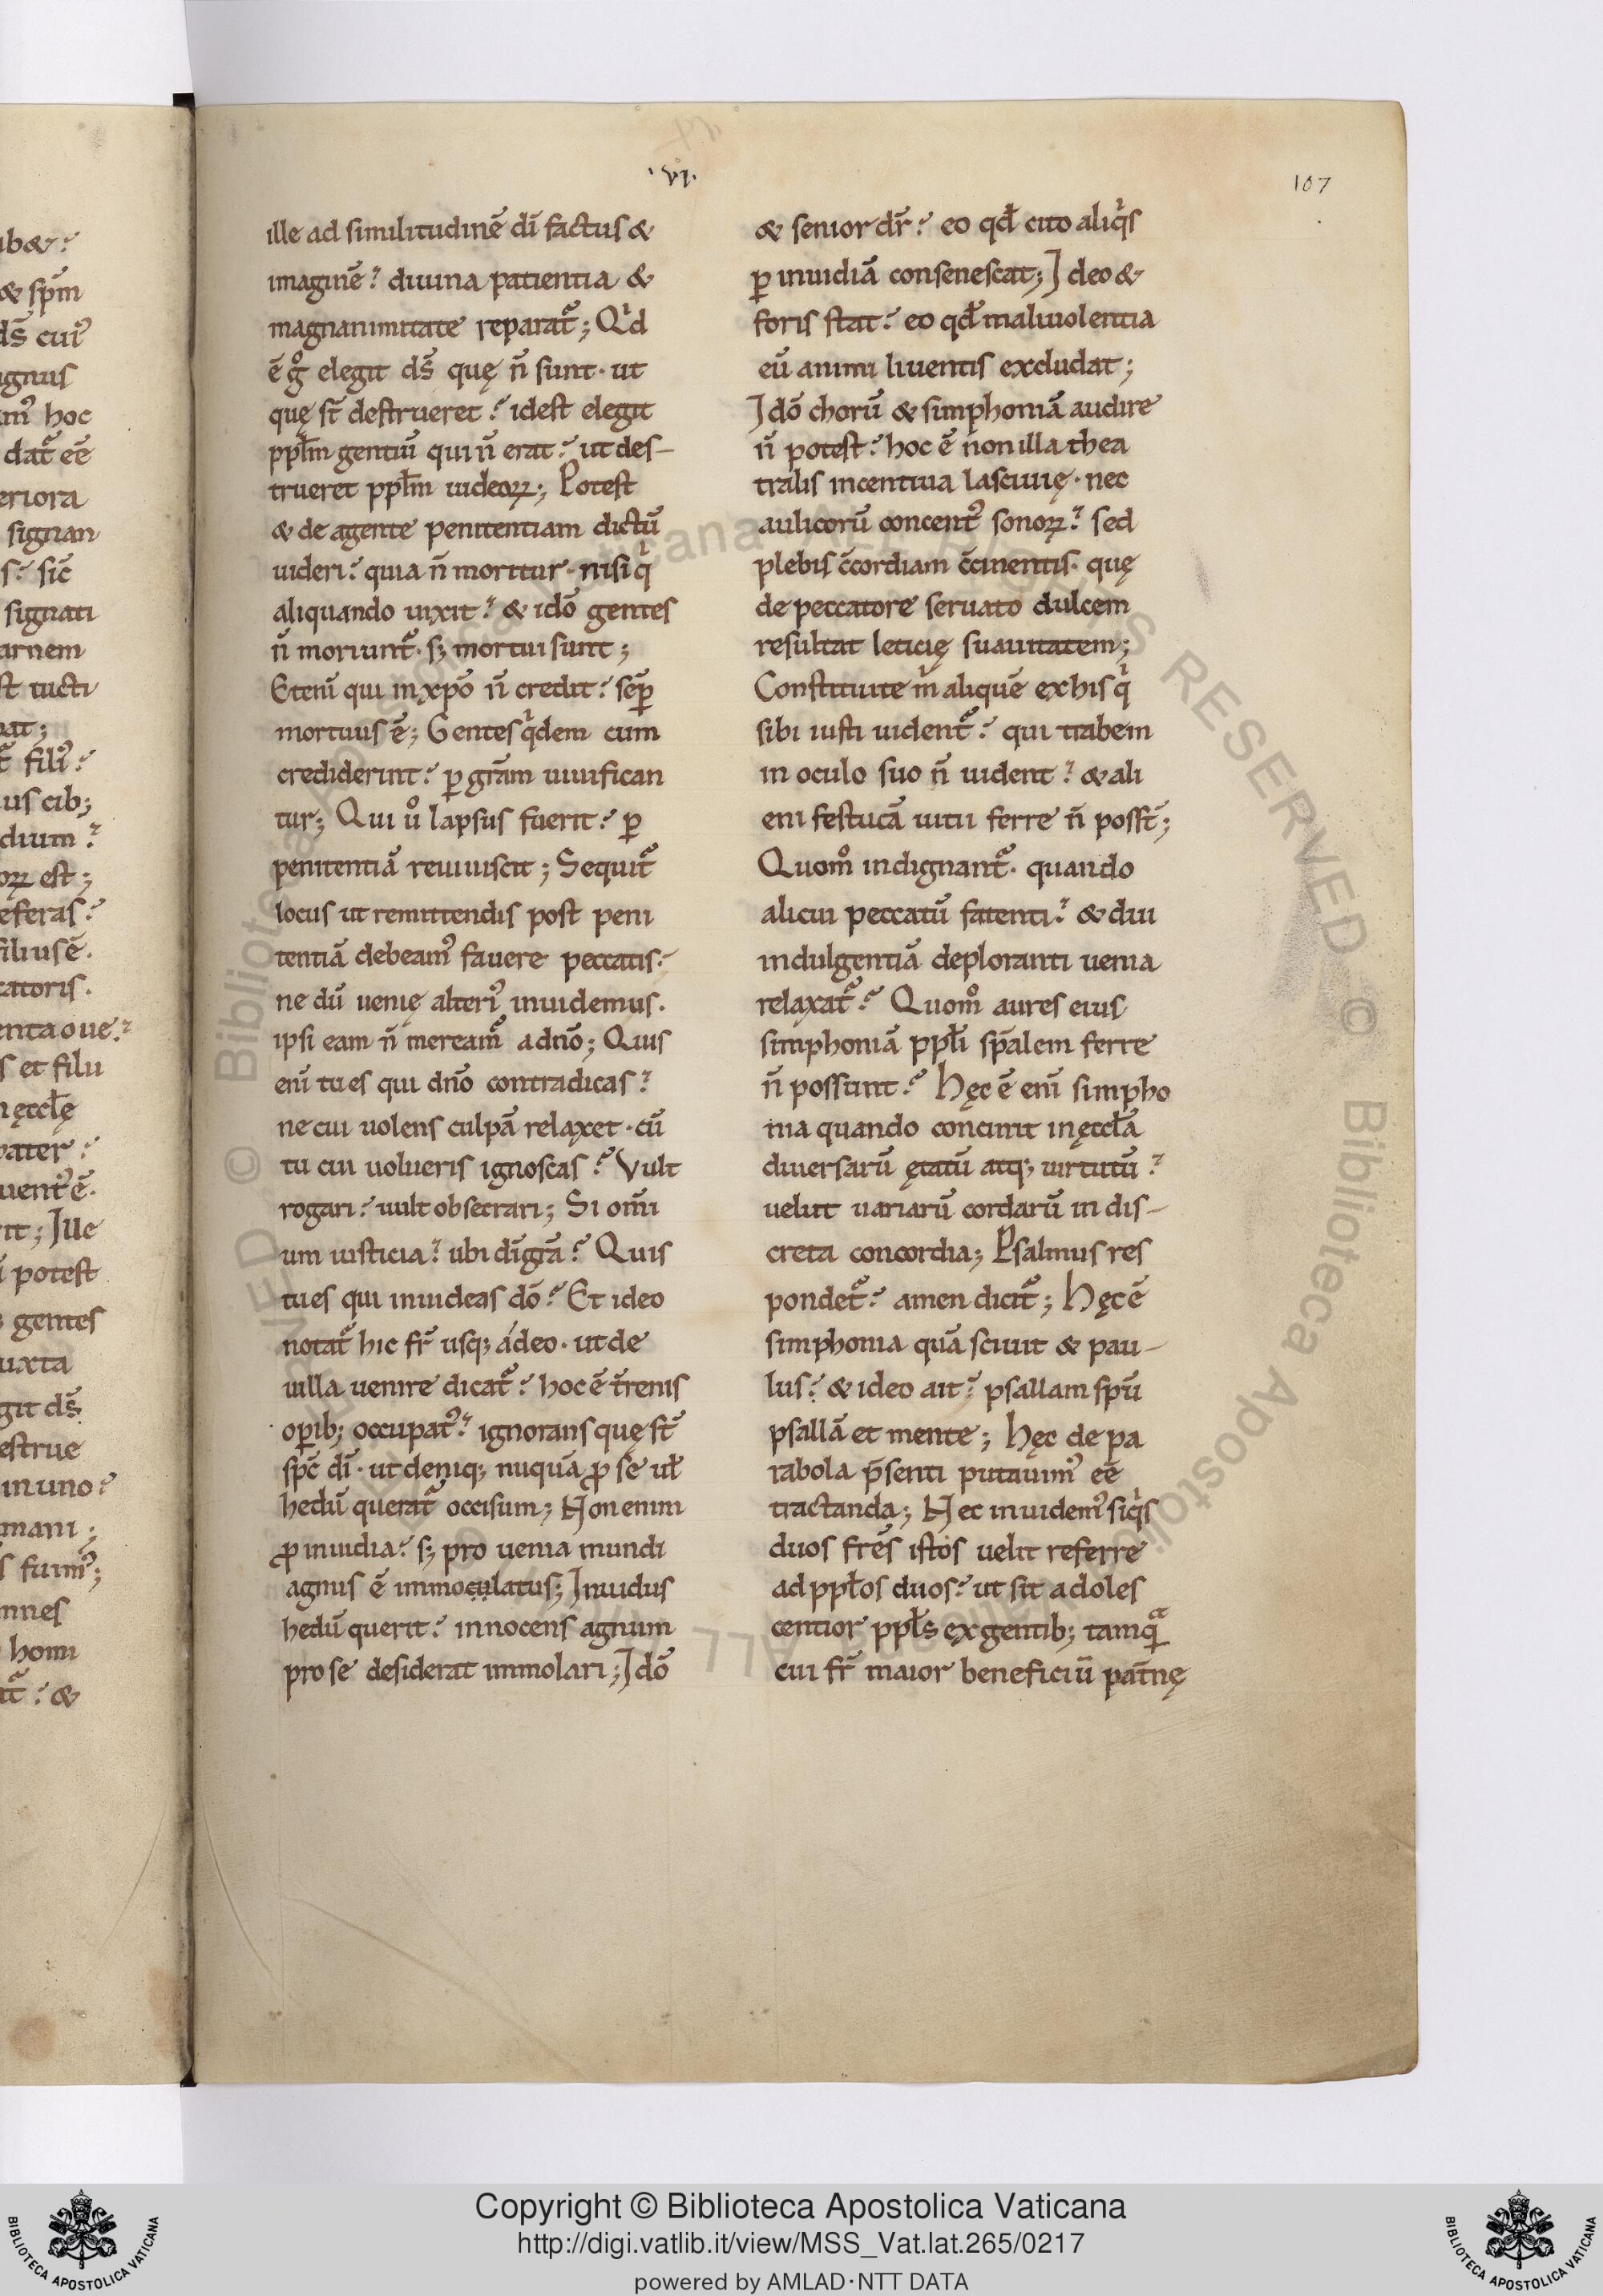 ·vi·
107
ille ad similitudinē dī factus &
imaginē? diuina patientia &
magnanimitate reparat᷑; Qͥd
ē gͦ elegit ds̄ quę n̄ sunt· ut
quę st̄ destrueret? idest elegit
pplm̄ gentiū qui n̄ erat? ut des-
trueret pplm̄ iudeoꝝ; Potest
& de agente penitentiam dictū
uideri? quia n̄ moritur· nisi qͥ
aliquando uixit? & idō gentes
n̄ moriunt᷑· s; mortui sunt;
Etenī qui in xp̄o n̄ credit? sēꝑ
mortuus ē; Gentes qͥdem cum
crediderint? ꝑ grām uiuifican
tur; Qui uͦ lapsus fuerit? ꝑ
penitentiā reuiuiscit; Sequit᷑
locus ut remittendis post peni
tentiā debeamꝰ fauere peccatis?
ne dū uenię alteriꝰ inuidemus·
ipsi eam n̄ meream᷑ a dn̄o; Quis
enī tu es qui dn̄o contradicas?
ne cui uolens culpā relaxet· cū
tu cui uolueris ignoscas? Vult
rogari? uult obsecrari; Si om̄i
um iusticia? ubi dī grā? Quis
tu es qui inuideas dō? Et ideo
notat᷑ hic fr̄ usq; adeo· ut de
uilla uenire dicat᷑? hoc ē t̄renis
oꝑib; occupatꝰ? ignorans quę st̄
spc̄ dī· ut deniq; nuquā ꝓ se ul̄
hedū querat᷑ occisum; Non enim
ꝓ inuidia? s; pro uenia mundi
agnus ē immoculatus; Inuidus
hedū querit? innocens agnum
pro se desiderat immolari; Idō
& senior dr̄? eo qd̄ cito aliqͥs
ꝑ inuidiā consenescat; Ideo &
foris stat? eo qd̄ maliuolentia
eū animi liuentis excludat;
Idō chorū & simphoniā audire
n̄ potest? hoc ē non illa thea
tralis incentiua lasciuię· nec
aulicorū concentꝰ sonoꝝ? sed
plebis c̄cordiam c̄cinentis· quę
de peccatore seruato dulcem
resultat leticię suauitatem;
Constituite mͥ aliquē ex his qͥ
sibi iusti uident᷑? qui trabem
in oculo suo n̄ uident? & ali
eni festucā uitii ferre n̄ posst̄;
Quomͦ indignant᷑· quando
alicui peccatū fatenti? & diu
indulgentiā deploranti uenia
relaxat᷑? Quomͦ aures eius
simphoniā ppl̄i sp̄alem ferre
n̄ possunt? Hęc ē enī simpho
nia quando concinit in ęccl̄a
diuersarū ętatū atq; uirtutū?
uelut uariarū cordarū indis-
creta concordia; Psalmus res
pondet᷑? amen dicit᷑; Hęc ē
simphonia quā sciuit & pau-
lus? & ideo ait? psallam spū
psallā et mente; Hęc de pa
rabola p̄senti putauimꝰ eē
tractanda; Nec inuidemꝰ siqͥs
duos frēs istos uelit referre
ad ppl̄os duos? ut sit adoles
centior ppl̄s ex gentib; tamqͣ
cui fr̄ maior beneficiū pat̄nę
Copyright © Biblioteca Apostolica Vaticana
http://digi.vatlib.it/view/MSS_Vat.lat.265/0217
powered by AMLAD·NTT DATA
BIBLIOTECA APOSTOLICA VATICANA
BIBLIOTECA APOSTOLICA VATICANA